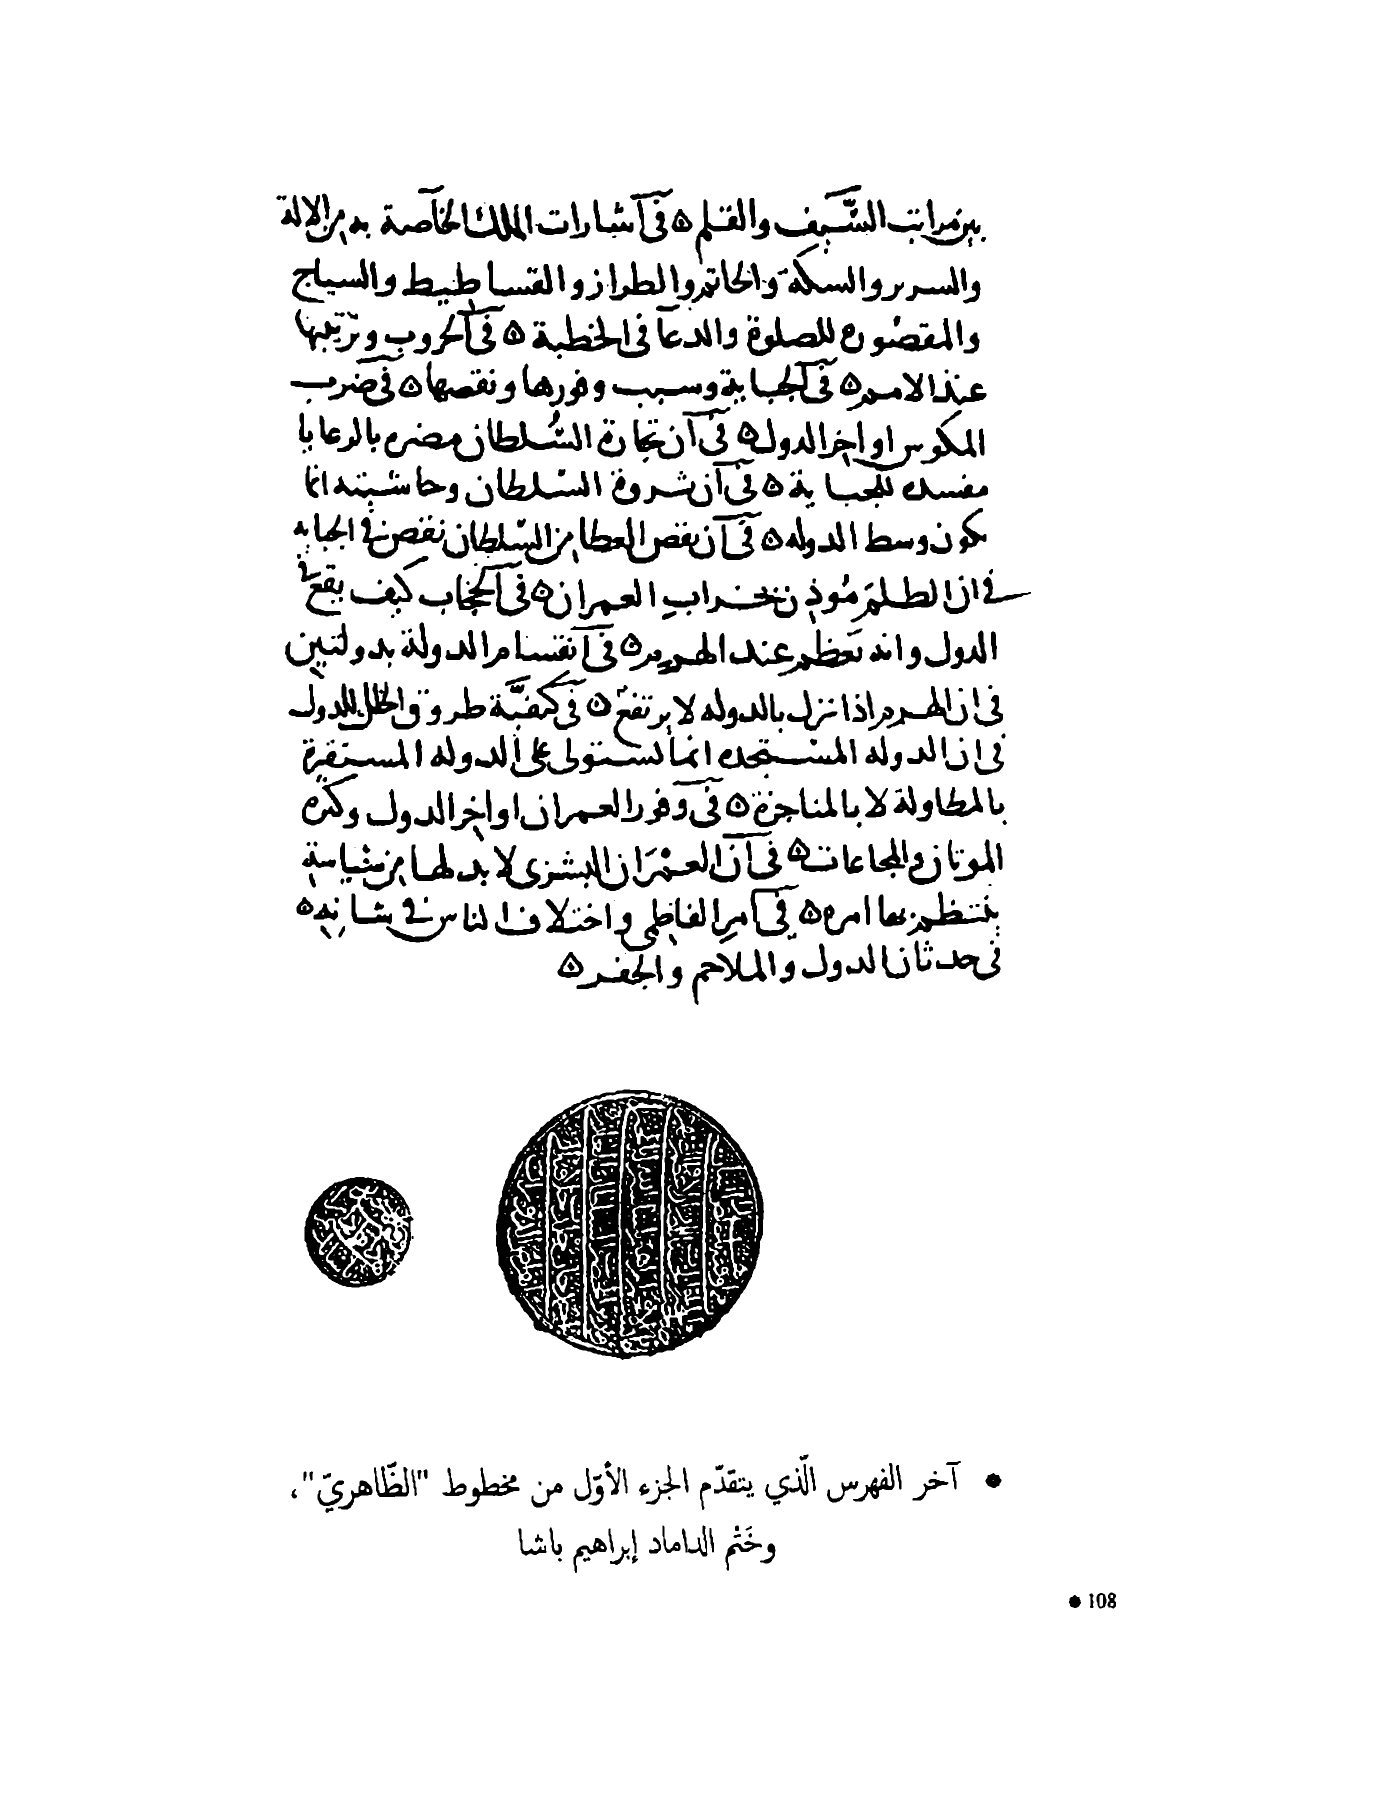 بين مراتب السَّيف والقلم ۵ في آشارات الملك الخاصة به من الالة
والسرير والسكة والخاتم والطراز والفساطيط والسياج
والمقصُوره للصلوة والدعآ في الخطبة ۵ في آلحروب وترتيبها
عند الامم ۵ في آلجباية وسبب وفورها ونقصها ۵ في ضرب
المكوس اواخر الدول ۵ في آن تجارة السُّلطان مضره بالرعايا
مفسده للجباية ۵ في آن ثروة السلطان وحاشيته انما
يكون وسط الدوله ۵ في آن نقص العطا من السّلطان نقص في الجبايه
في ان الظلم مُوذن بخراب العمران ۵ في آلحجاب كيف يقع في
الدول وانه يَعظم عند الهرم ۵ في آنقسام الدولة بدولتين
في ان الهرم اذا نزل بالدوله لا يرتفع ۵ في كيفيَّة طروق الخلل للدول
في ان الدوله المستجده انما تستولى على الدوله المستقرة
بالمطاولة لا بالمناجزة ۵ في وفور العمران اواخر الدول وكثره
الموتان والمجاعات ۵ في آن العمْرَان البشرى لا بد لها من سياسة
ينتظم بها امره ۵ في آمر الفاطمى واختلاف الناس في شانه ۵
في حدثان الدول والملاحم والجفر ۵
● آخر الفهرس الّذي يتقدّم الجزء الأوّل من مخطوط "الظّاهريّ"،
وخَتْم الداماد إبراهيم باشا
● 108